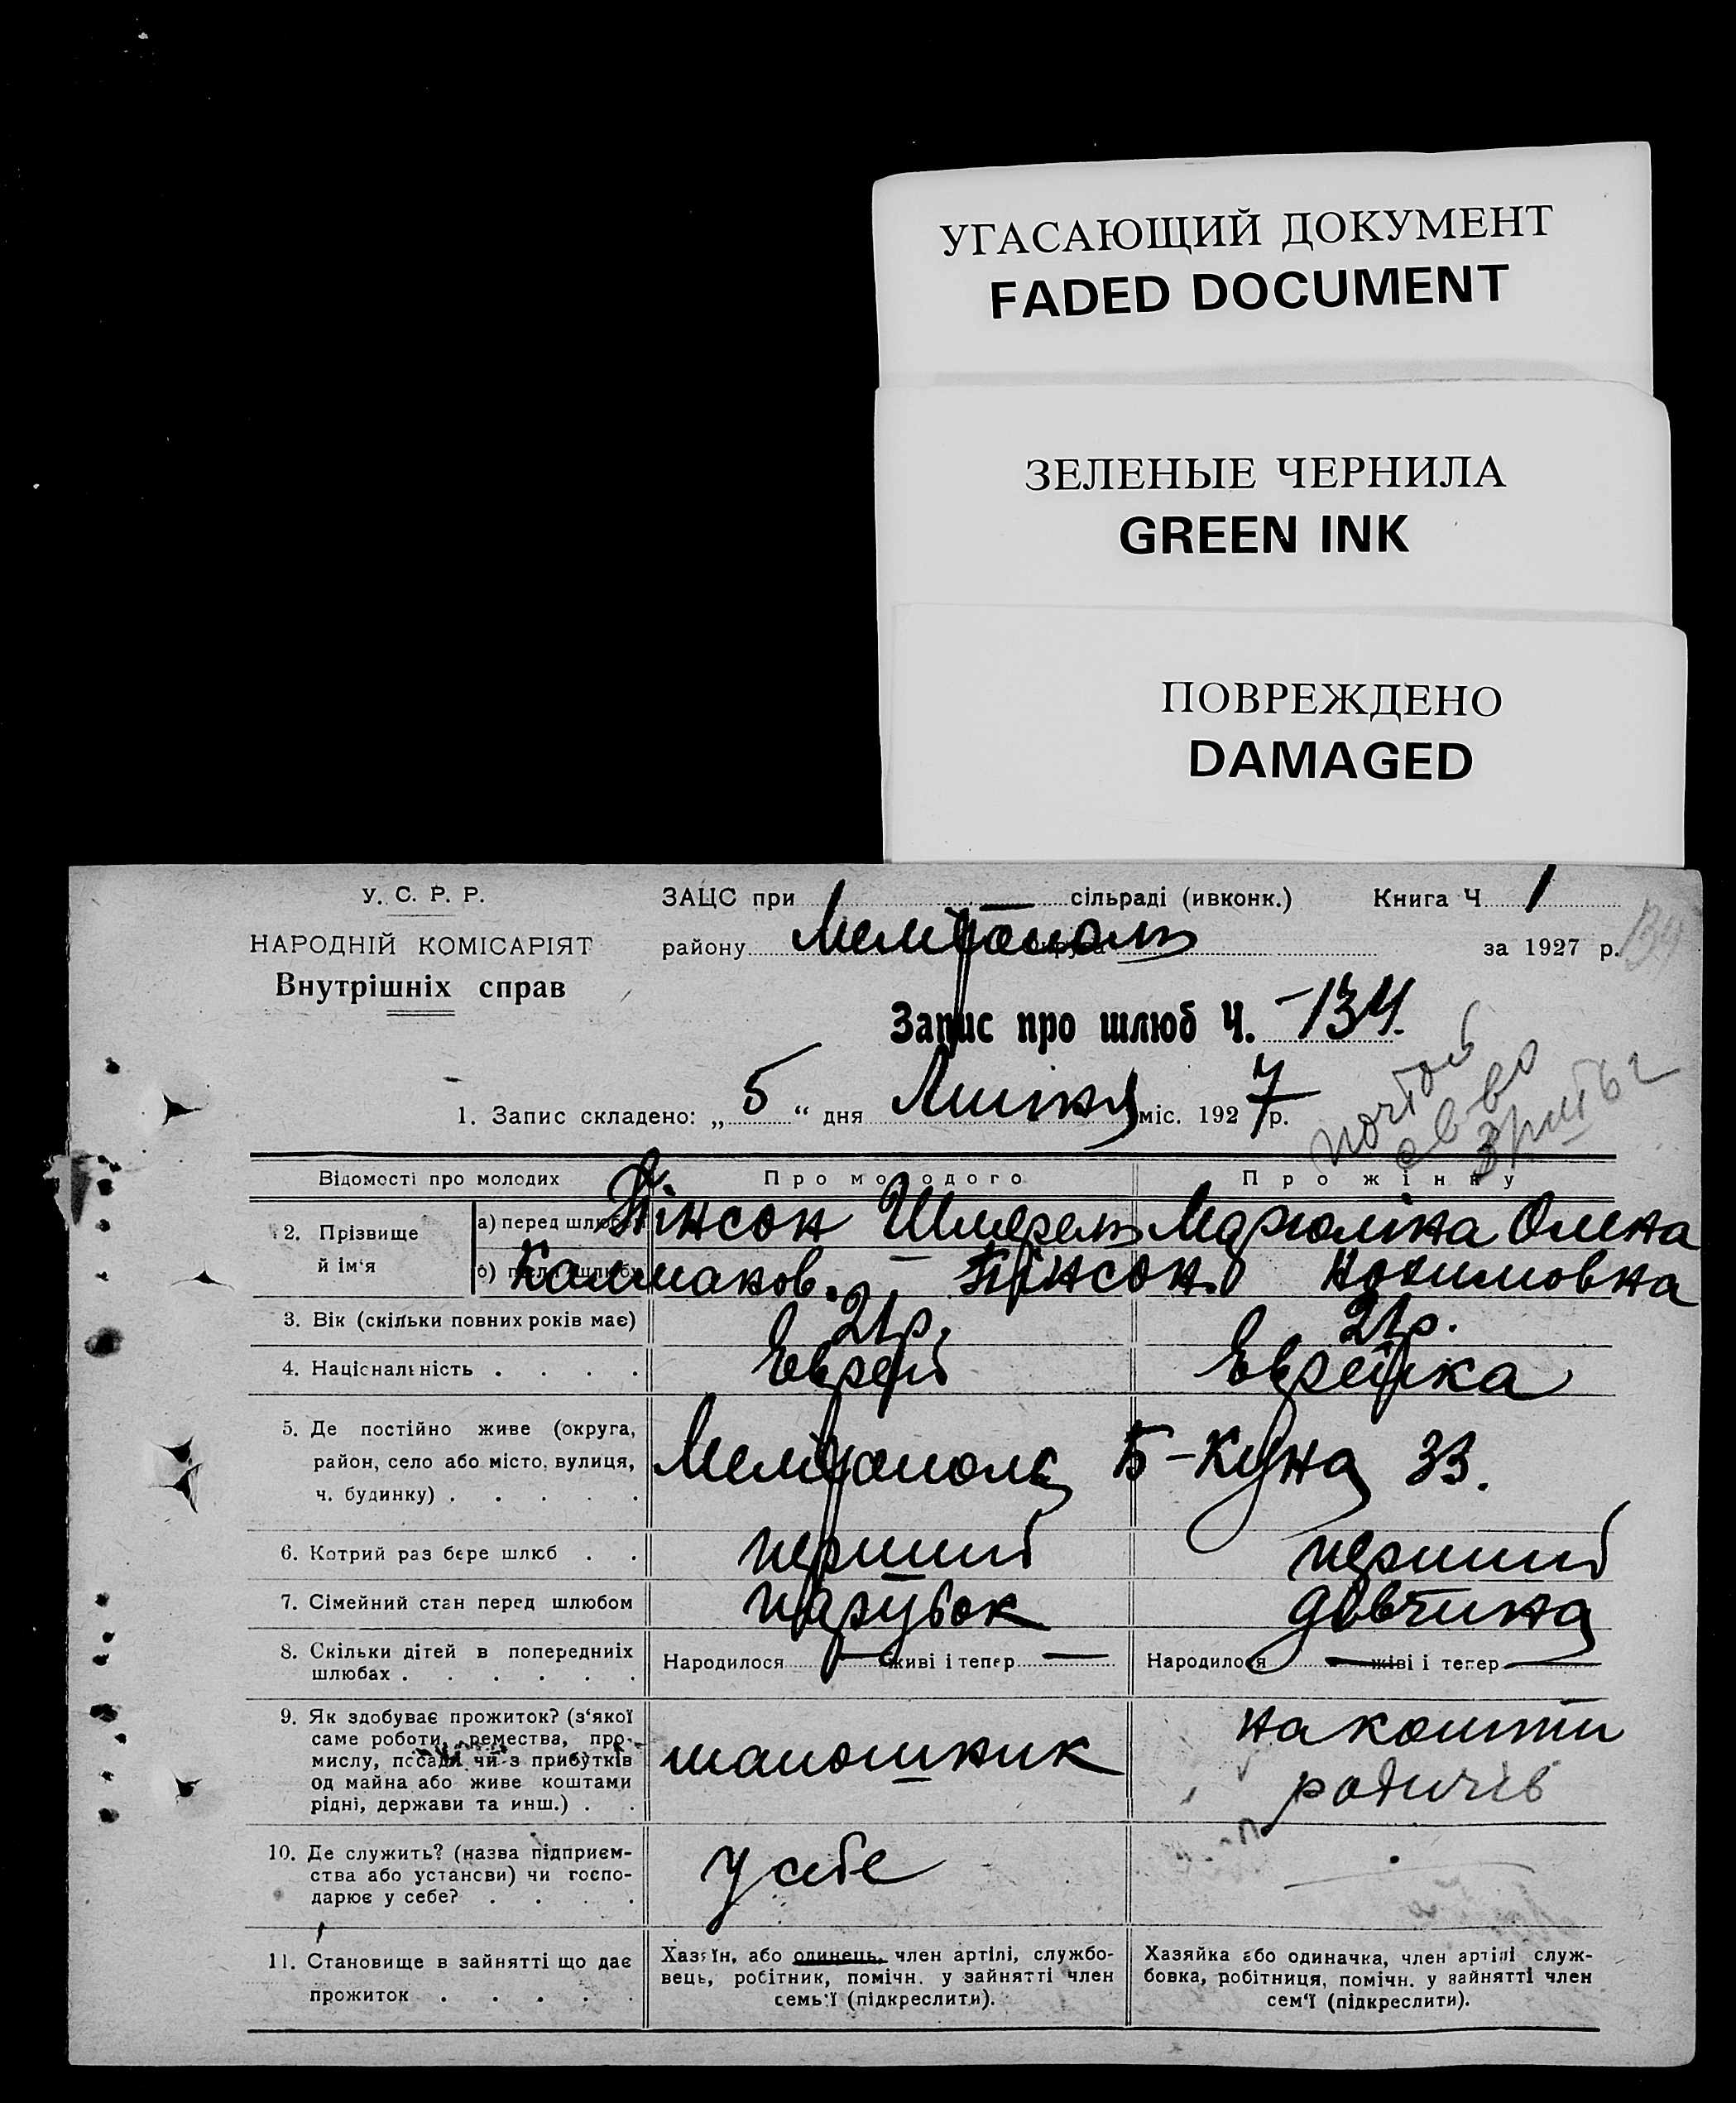 УГАСАЮЩИЙ ДОКУМЕНТ
FADED DOCUMENT
ЗЕЛЕНЫЕ ЧЕРНИЛА
GREEN INK
ПОВРЕЖДЕНО
DAMAGED
У. С. Р. Р.
НАРОДНІЙ КОМІСАРІЯТ
Внутрішніх справ
ЗАЦС при — сільраді (ивконк.) Книга Ч 1
району Мелітополь за 1927 р.
134
Запис про шлюб Ч. 134.
1. Запис складено: „ 5 “ дня Липня міс. 1927 р.
Відомості про молодих Про молодого Про жінку
2. Прізвище й ім‘я
а) перед шлюбом Пінсон Шмерель Марголіна Олена
б) після шлюбу Калманов. Пінсон. Нохимовна
3. Вік (скільки повних років має) 21р. 21р.
4. Національність . . . . Еврей Еврейка
5. Де постійно живе (округа,
район, село або місто, вулиця,
ч. будинку) . . . . . Мелітополь Б-Куна 33.
6. Котрий раз бере шлюб . . перший перший
7. Сімейний стан перед шлюбом парубок дівчина
8. Скільки дітей в попередниіх
шлюбах . . . . . . Народилося — живі і тепер — Народилося — живі і тепер —
9. Як здобуває прожиток? (з‘якої
саме роботи, ремества, про-
мислу, посади чи з прибутків
од майна або живе коштами
рідні, держави та инш.) . .
шапошник
на кошти
родичів
10. Де служить? (назва підприєм-
ства або установи) чи госпо-
дарює у себе? . . . .
у себе
—
11. Становище в зайнятті що дає
прожиток . . . . .
Хазяїн, або одинець, член артілі, службо-
вець, робітник, помічн. у зайнятті член
семь‘ї (підкреслити).
Хазяйка або одиначка, член артілі служ-
бовка, робітниця, помічн. у зайнятті член
сем‘ї (підкреслити).